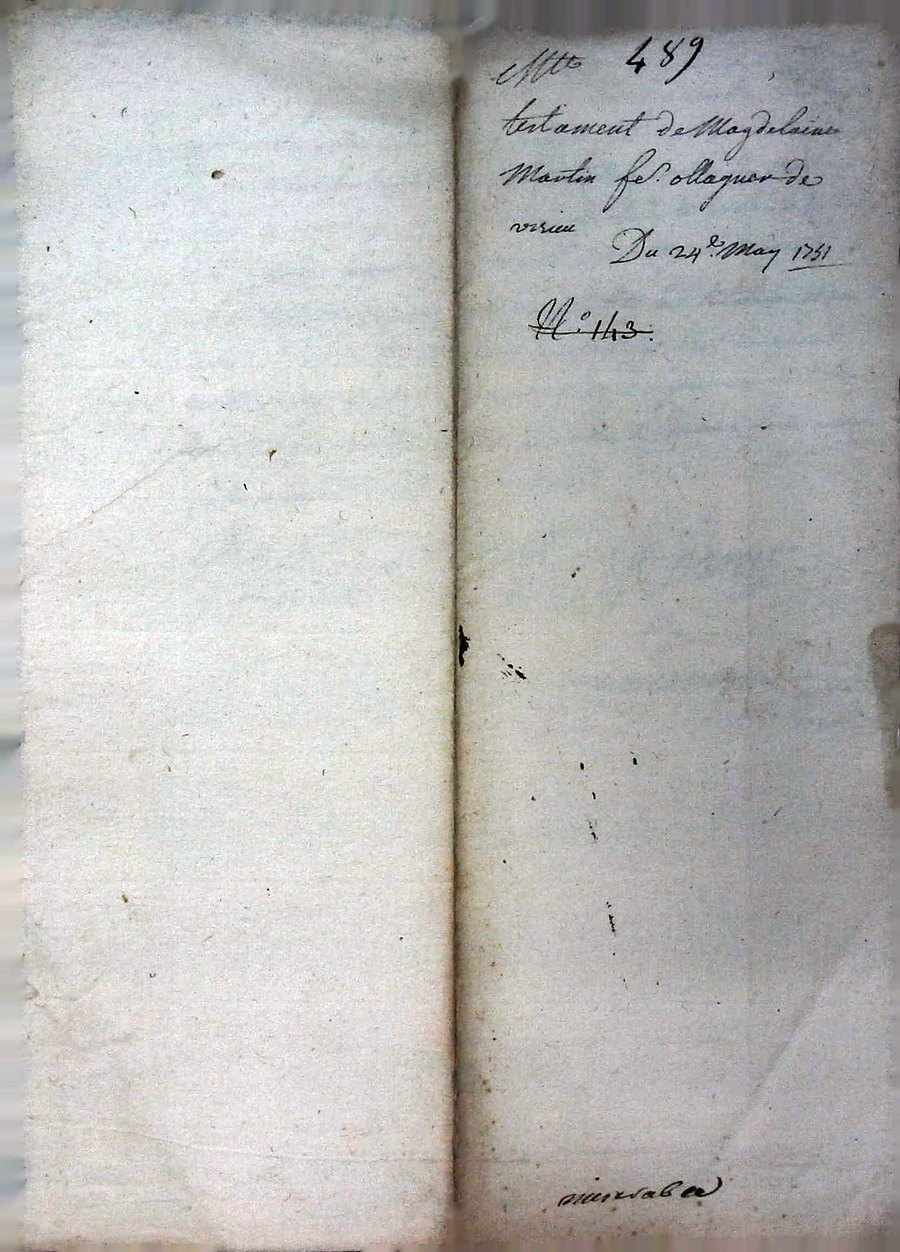 489
testament de Magdelaine
Martin fe. ollagner de
virieu
Du 24e. May 1751
N.° 143.